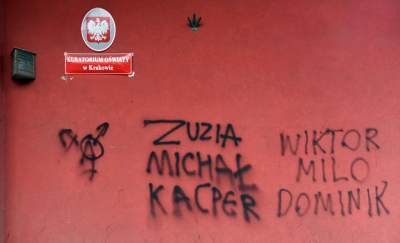 KURATORIUM OŚWIATY
w Krakowie
ZUZIA
MICHAŁ
KACPER
WIKTOR
MILO
DOMINIK